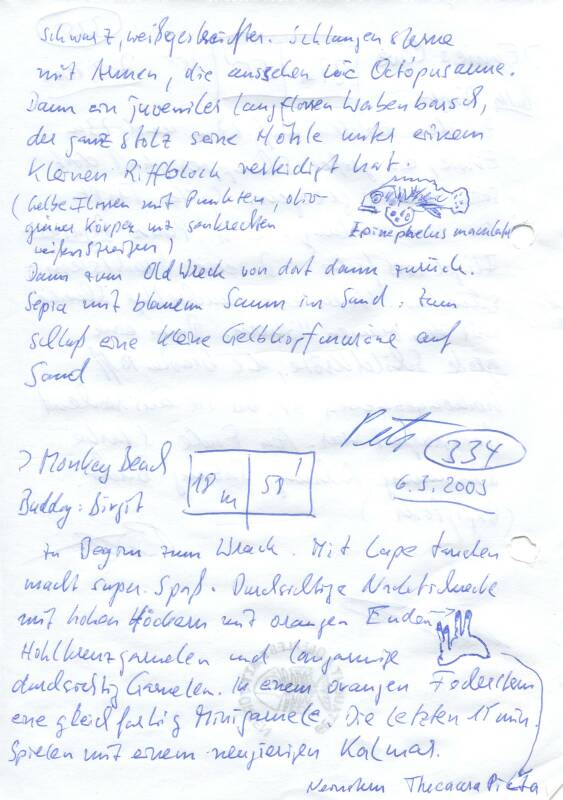 schwarz, weißgestreifter. Schlangensterne
mit Armen, die aussehen wie Octópusarme.
Dann ein juveniler langflossen Wabenbarsch,
der ganz stolz seine Höhle unter einem
kleinen Riffblock verteidigt hat.
(Gelbe Flossen mit Punkten, oliv-
grüner Körper mit senkrechten
weißen Streifen)
Epinephelus maculatus
Dann zum Old Wreck von dort dann zurück.
Sepia mit blauem Saum im Sand. Zum
schluß eine kleine Gelbkopfmuräne auf
Sand
334
> Monkey Beach
18 m
59'
6.3.2003
Buddy: Birgit
zu Beginn zum Wrack. Mit Lupe tauchen
macht super Spaß. Durchsichtige Nacktschnecke
mit hohen Höckern mit orangen Enden →
Hohlkreuzgarnelen und langarmige
durchsichtig Garnelen. In einem orangen Federstern
eine gleichfarbig Minigarnele. Die letzten 15 min.
Spielen mit einem neugierigen Kalmar.
Thecacera Picta